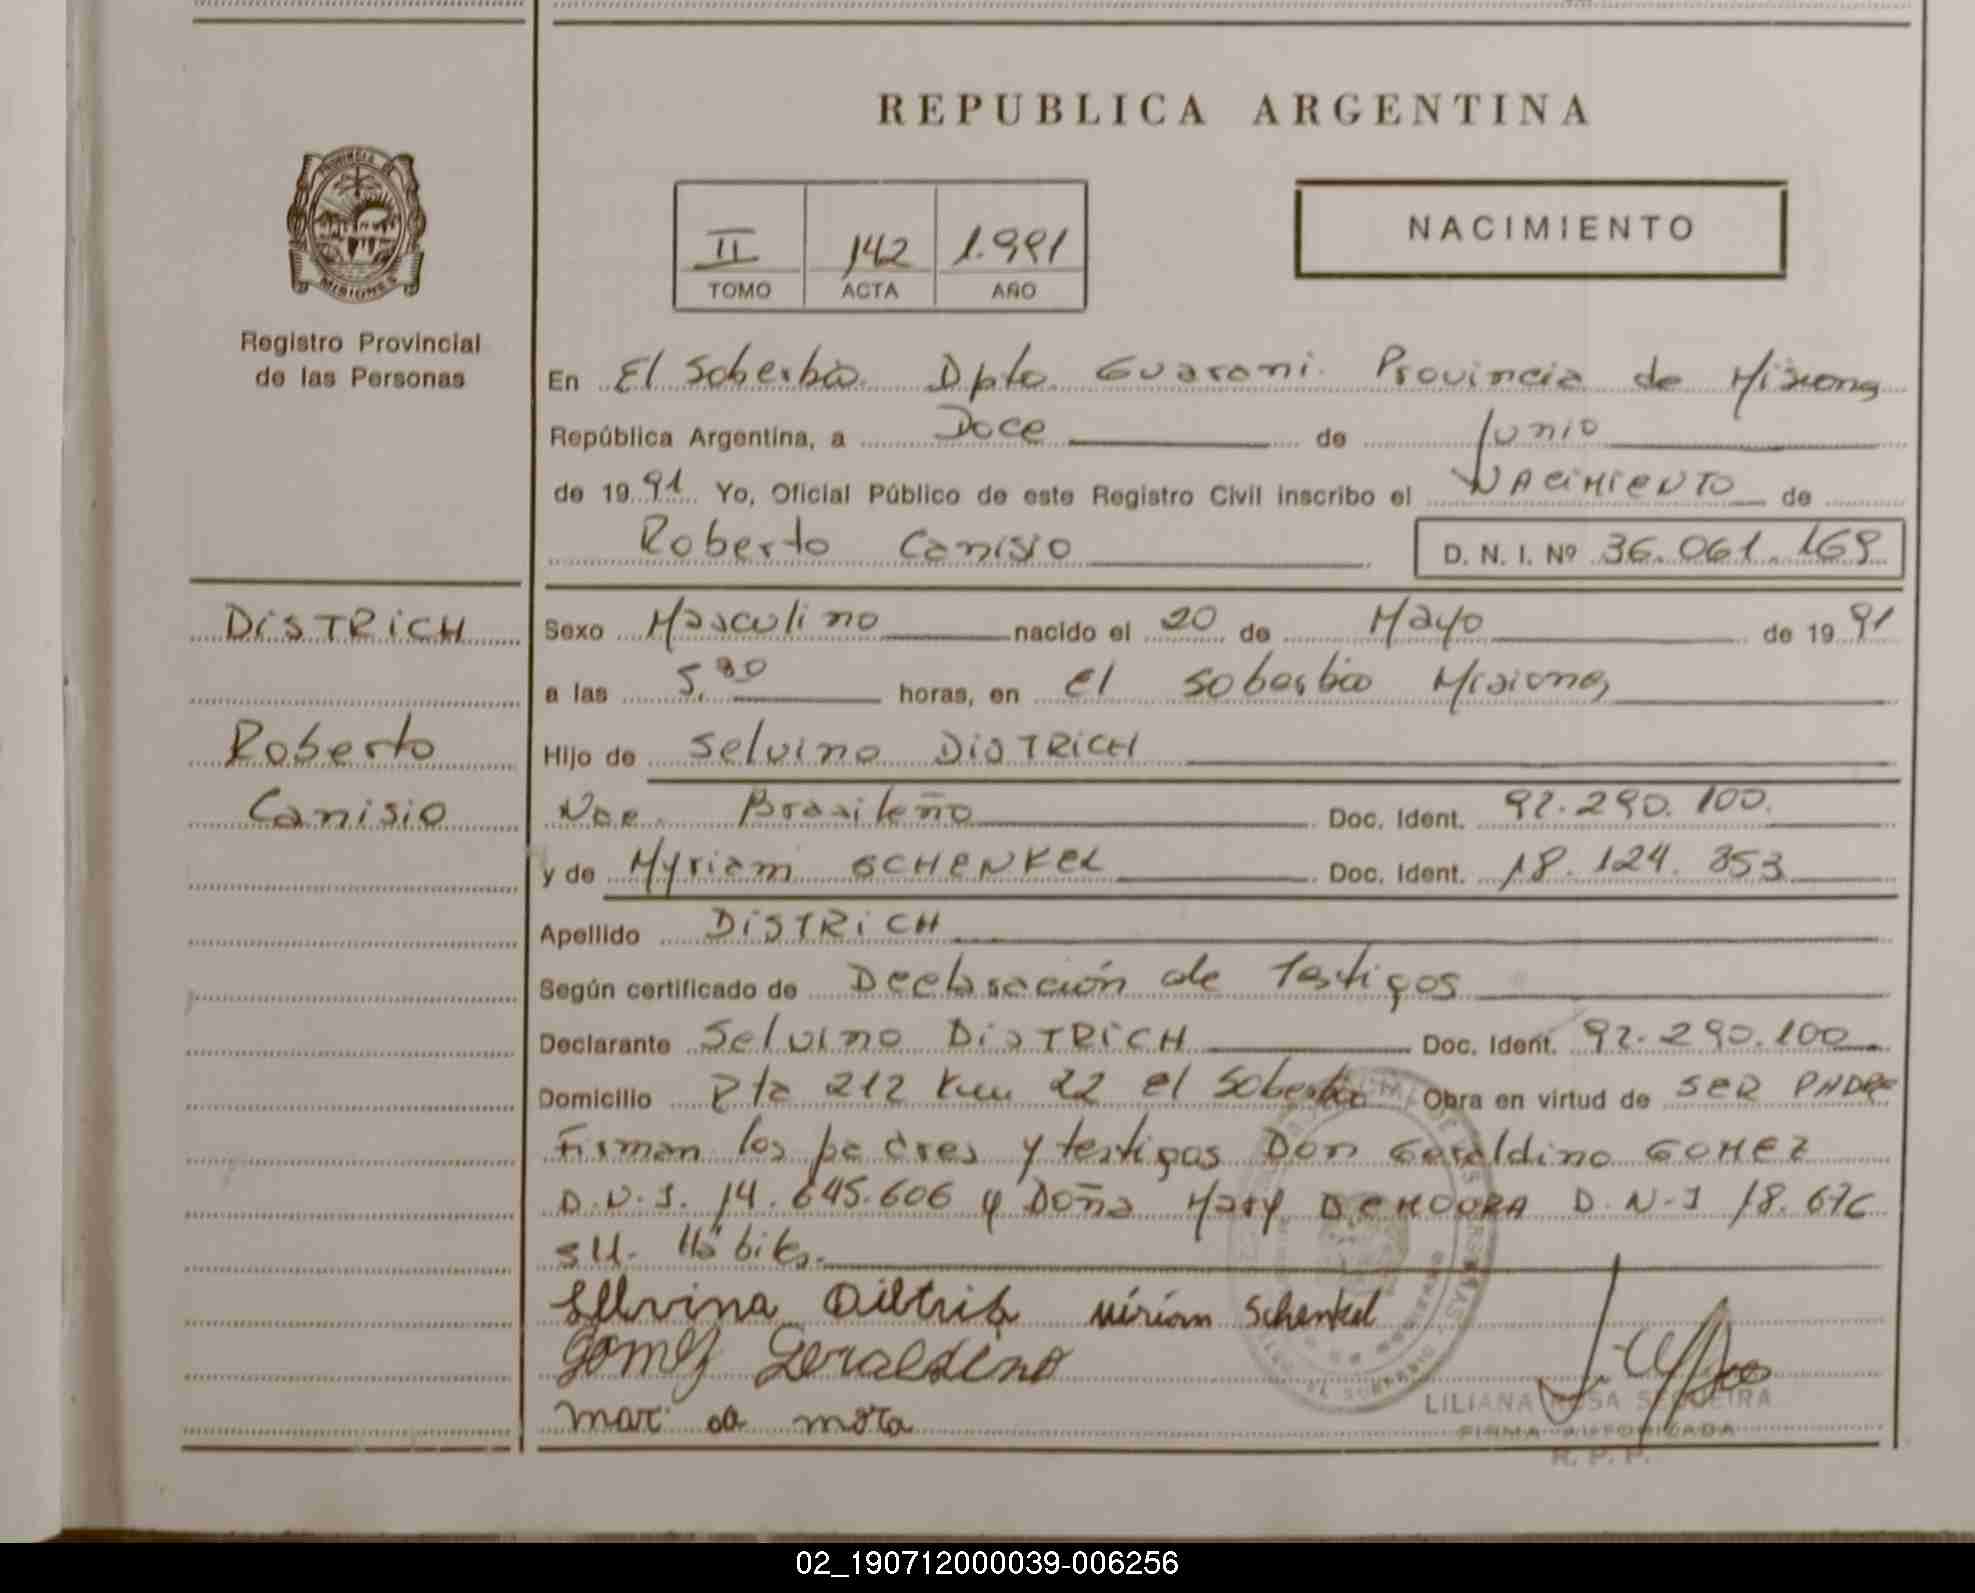 REPUBLICA ARGENTINA
PROVINCIA DE
MISIONES
Registro Provincial
de las Personas
II 142 1.991
TOMO ACTA AÑO
NACIMIENTO
En El Soberbio Dpto Guarani Provincia de Misiones
República Argentina, a Doce de Junio
de 1991 Yo, Oficial Público de este Registro Civil inscribo el NACIMIENTO de
Roberto Canisio D. N. I. Nº 36.061.169
DISTRICH
Roberto
Canisio
Sexo Masculino nacido el 20 de Mayo de 1991
a las 5.30 horas, en el soberbio Misiones
Hijo de Selvino DISTRICH
Nac. Brasileño Doc. Ident. 92.290.100.
y de Myriam SCHENKEL Doc. Ident. 18.124.353
Apellido DISTRICH
Según certificado de Declaración de Testigos
Declarante Selvino DISTRICH Doc. Ident. 92.290.100
Domicilio Rta 212 Km 22 el Soberbio Obra en virtud de SER PADRE
Firman los padres y testigos Don Geraldino GOMEZ
D.N.I. 14.645.606 y Doña Mary DEMOORA D.N.I 18.676
S/U. Hábiles.
Schenkel
Gomez Geraldino
mota
LILIANA ROSA SEQUEIRA
FIRMA AUTORIZADA
R. P. P.
02_190712000039-006256